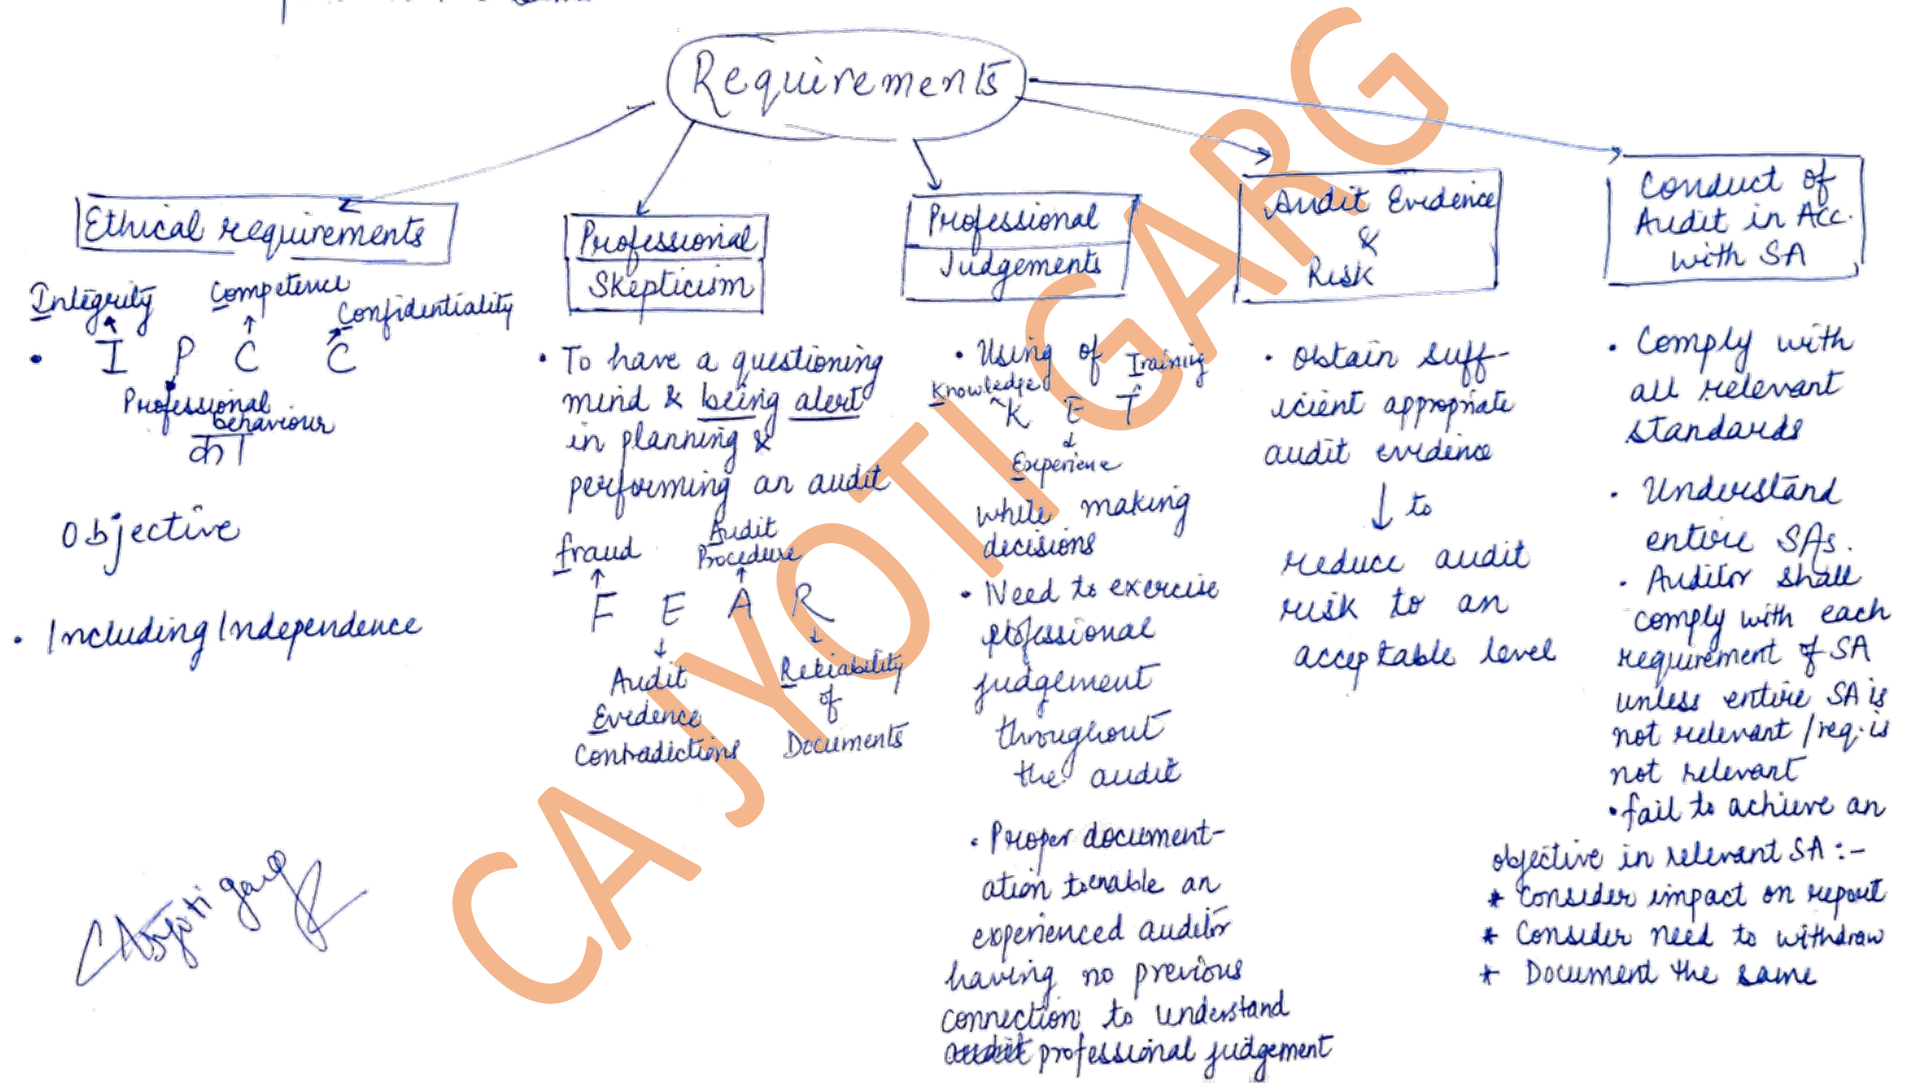 Requirements
Ethical requirements
Integrity
Competence
Confidentiality
• I P C C
Professional
behaviour
का
Objective
• Including Independence
Professional
Skepticism
• To have a questioning
mind & being alert
in planning &
performing an audit
fraud
Audit
Procedure
F E A R
Audit
Evidence
Contradictions
Reliability
of
Documents
Professional
Judgements
• Using of
Training
Knowledge
K E T
Experience
while making
decisions
• Need to exercise
professional
judgement
throughout
the audit
• Proper document-
ation to enable an
experienced auditor
having no previous
connection to understand
professional judgement
Audit Evidence
&
Risk
• obtain suff-
icient appropriate
audit evidence
↓ to
reduce audit
risk to an
acceptable level
Conduct of
Audit in Acc.
with SA
• Comply with
all relevant
standards
• Understand
entire SAs.
• Auditor shall
comply with each
requirement of SA
unless entire SA is
not relevant / req. is
not relevant
• fail to achieve an
objective in relevant SA :-
* Consider impact on report
* Consider need to withdraw
* Document the same
CA Jyoti garg
CA JYOTI GARG